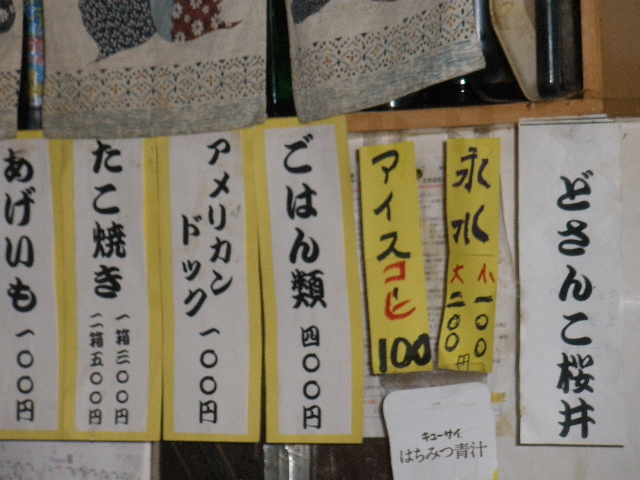 どさんこ桜井
氷水
小一〇〇
大二〇〇円
アイスコーヒ
100
ごはん類 四〇〇円
アメリカン
ドック 一〇〇円
たこ焼き
一箱三〇〇円
二箱五〇〇円
あげいも 一〇〇円
キューサイ
はちみつ青汁